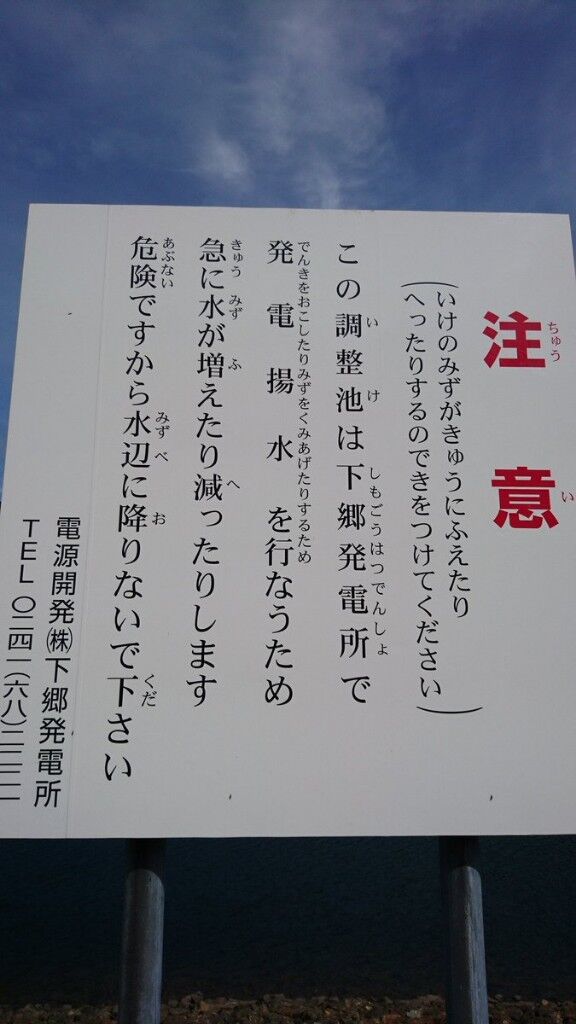 注意
ちゅうい
(いけのみずがきゅうにふえたり
へったりするのできをつけてください)
この調整池は下郷発電所で
いけ
しもごうはつでんしょ
発電揚水を行なうため
でんきをおこしたりみずをくみあげたりするため
急に水が増えたり減ったりします
きゅう
みず
ふ
へ
危険ですから水辺に降りないで下さい
あぶない
みずべ
お
くだ
電源開発㈱下郷発電所
TEL〇二四一(六八)二二二一